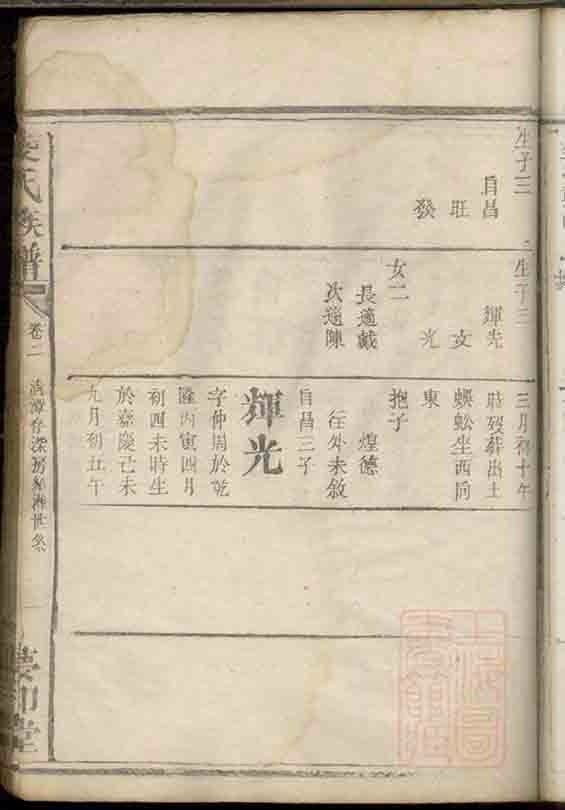 生子三
自昌
旺
發
生子三
輝先
文
光
女二
長適戴
次適陳
三月初十午
時歿葬出土
蜈蚣坐西向
東
抱子
煌德
往外未敘
自昌三子
輝光
字仲周於乾
隆丙寅四月
初四未時生
於嘉慶己未
九月初五午
氏族譜
卷二
世系
堂
上海圖書館藏